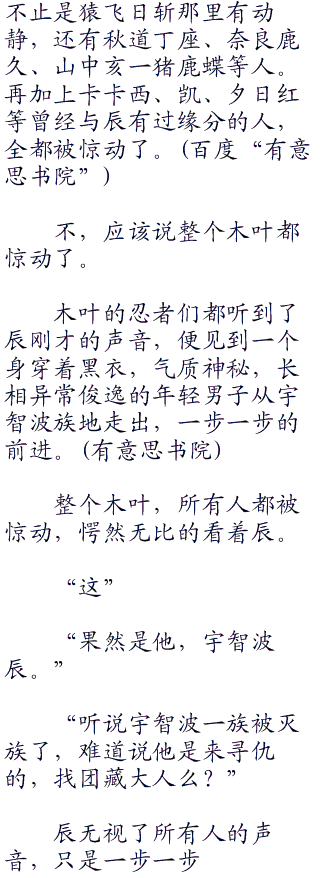 不止是猿飞日斩那里有动
静，还有秋道丁座、奈良鹿
久、山中亥一猪鹿蝶等人。
再加上卡卡西、凯、夕日红
等曾经与辰有过缘分的人，
全都被惊动了。(百度“有意
思书院”)
不，应该说整个木叶都
惊动了。
木叶的忍者们都听到了
辰刚才的声音，便见到一个
身穿着黑衣，气质神秘，长
相异常俊逸的年轻男子从宇
智波族地走出，一步一步的
前进。(有意思书院)
整个木叶，所有人都被
惊动，愕然无比的看着辰。
“这”
“果然是他，宇智波
辰。”
“听说宇智波一族被灭
族了，难道说他是来寻仇
的，找团藏大人么？”
辰无视了所有人的声
音，只是一步一步